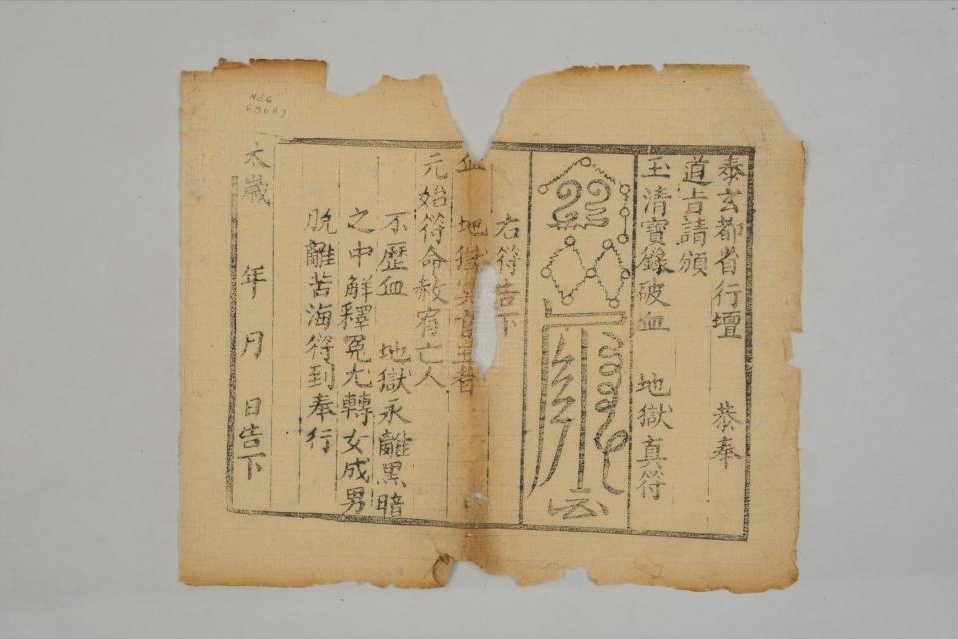 奉玄都省行壇 恭奉
道旨請頒
玉清寶籙破血 地獄真符
右符告下
血 地獄冥官主者
元始符命赦宥亡人
不歷血 地獄永離黑暗
之中解釋冤尤轉女成男
脫離苦海符到奉行
太歲 年 月 日告下